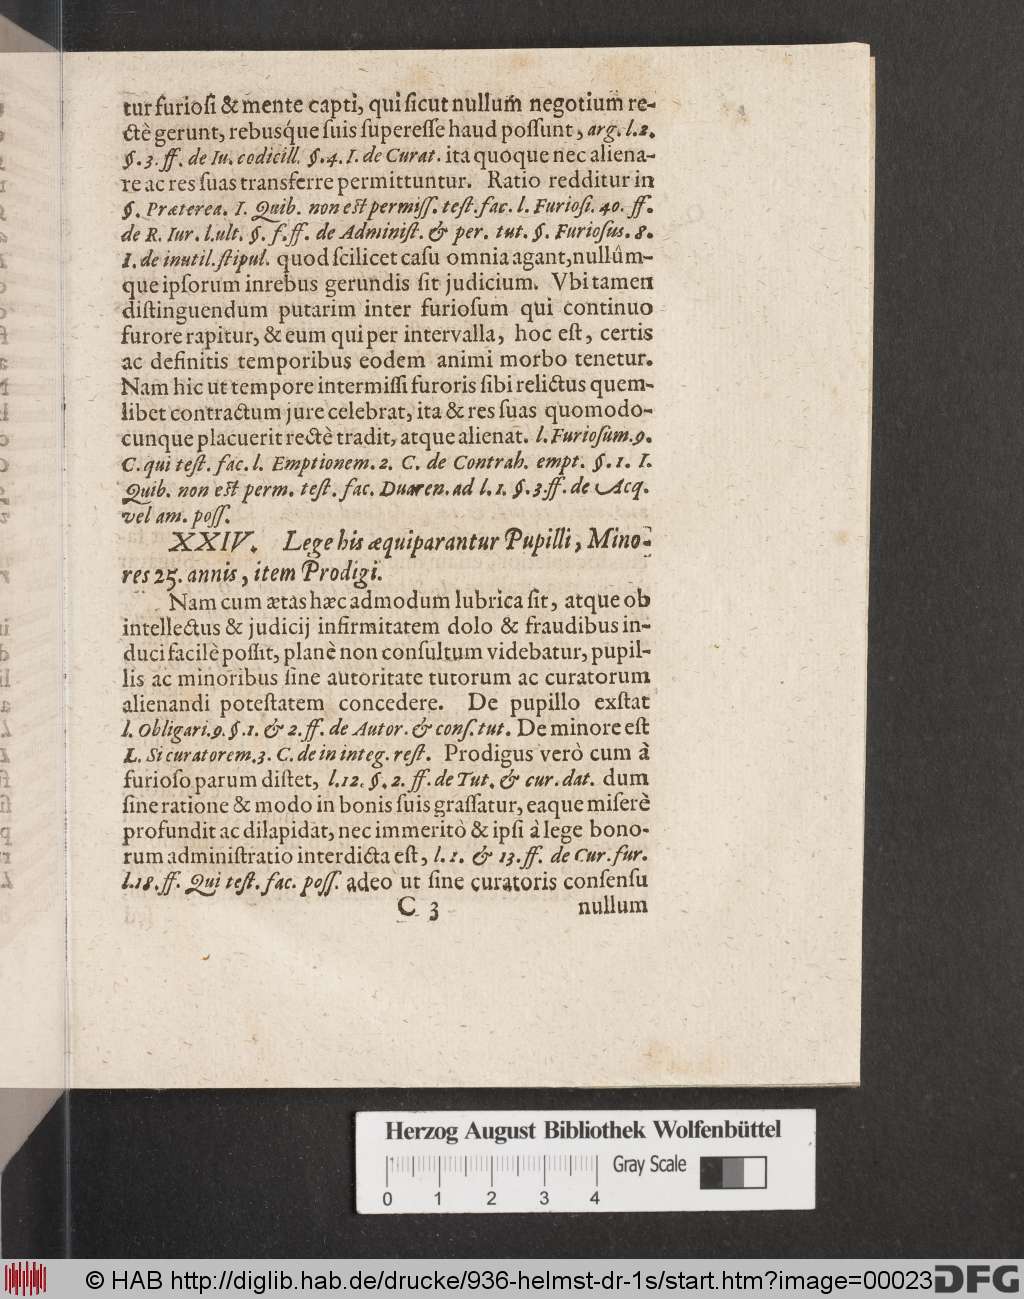 tur furioſi & mente capti, qui ſicut nullum̃ negotium re-
ctè gerunt, rebusq́ue ſuis ſupereſſe haud poſſunt, arg. l. 2.
§. 3. ff. de Iu. codicill. §. 4. I. de Curat. ita quoque nec aliena-
re ac res ſuas transferre permittuntur. Ratio redditur in
§. Præterea. I. Quib. non eſt permiſſ. teſt. fac. l. Furioſi. 40. ff.
de R. Iur. l. ult. §. f. ff. de Adminiſt. & per. tut. §. Furioſus. 8.
I. de inutil. ſtipul. quod ſcilicet caſu omnia agant, nullûm-
que ipſorum in rebus gerundis ſit judicium. Vbi tamen
diſtinguendum putarim inter furioſum qui continuo
furore rapitur, & eum qui per intervalla, hoc eſt, certis
ac definitis temporibus eodem animi morbo tenetur.
Nam hic ut tempore intermiſſi furoris ſibi relictus quem-
libet contractum jure celebrat, ita & res ſuas quomodo-
cunque placuerit rectè tradit, atque alienat. l. Furioſum. 9.
C. qui teſt. fac. l. Emptionem. 2. C. de Contrah. empt. §. 1. I.
Quib. non eſt perm. teſt. fac. Duaren. ad l. 1. §. 3. ff. de Acq.
vel am. poſſ.
XXIV. Lege his æquiparantur Pupilli, Mino-
res 25. annis, item Prodigi.
Nam cum ætas hæc admodum lubrica ſit, atque ob
intellectus & judicij infirmitatem dolo & fraudibus in-
duci facilè poſſit, planè non conſultum videbatur, pupil-
lis ac minoribus ſine autoritate tutorum ac curatorum
alienandi poteſtatem concedere. De pupillo exſtat
l. Obligari. 9. §. 1. & 2. ff. de Autor. & conſ. tut. De minore eſt
L. Si curatorem. 3. C. de in integ. reſt. Prodigus verò cum à
furioſo parum diſtet, l. 12. §. 2. ff. de Tut. & cur. dat. dum
ſine ratione & modo in bonis ſuis graſſatur, eaque miſerè
profundit ac dilapidat, nec immeritò & ipſi à lege bono-
rum adminiſtratio interdicta eſt, l. 1. & 13. ff. de Cur. fur.
l. 18. ff. Qui teſt. fac. poſſ. adeo ut ſine curatoris conſenſu
C 3 nullum
Herzog August Bibliothek Wolfenbüttel
Gray Scale
0 1 2 3 4
© HAB http://diglib.hab.de/drucke/936-helmst-dr-1s/start.htm?image=00023
DFG